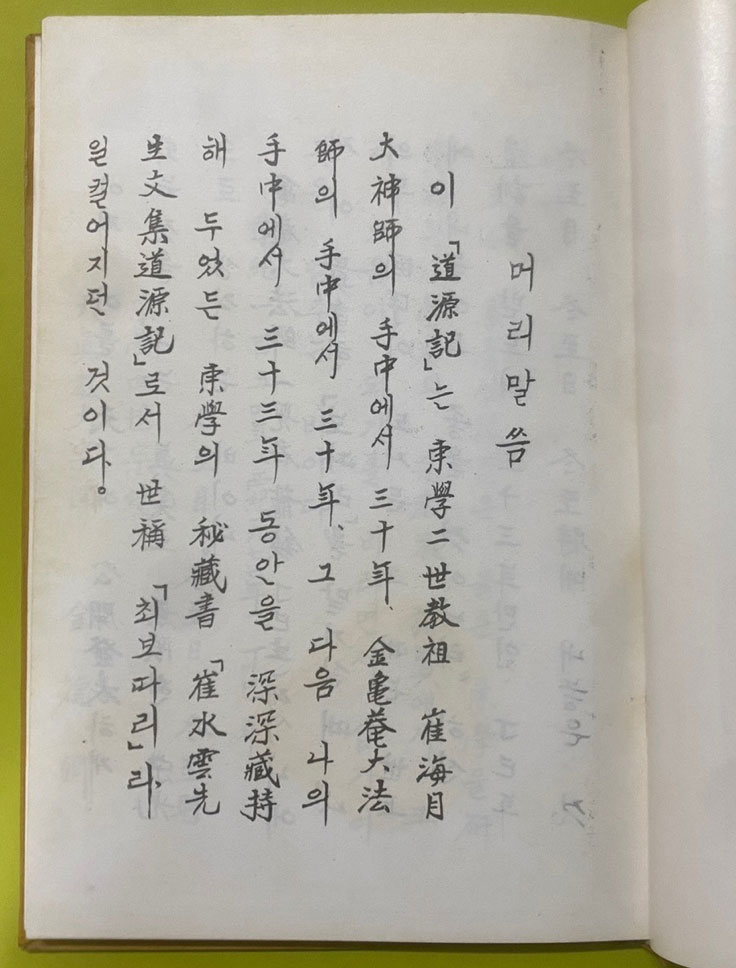 머리말씀
이 「道源記」는 東學二世教祖 崔海月
大神師의 手中에서 三十年、金龜菴大法
師의 手中에서 三十年、그 다음 나의
手中에서 三十三年 동안을 深深藏持
해 두었든 東學의 秘藏書 「崔水雲先
生文集道源記」로서 世稱 「최보따리」라、
일컬어지던 것이다。